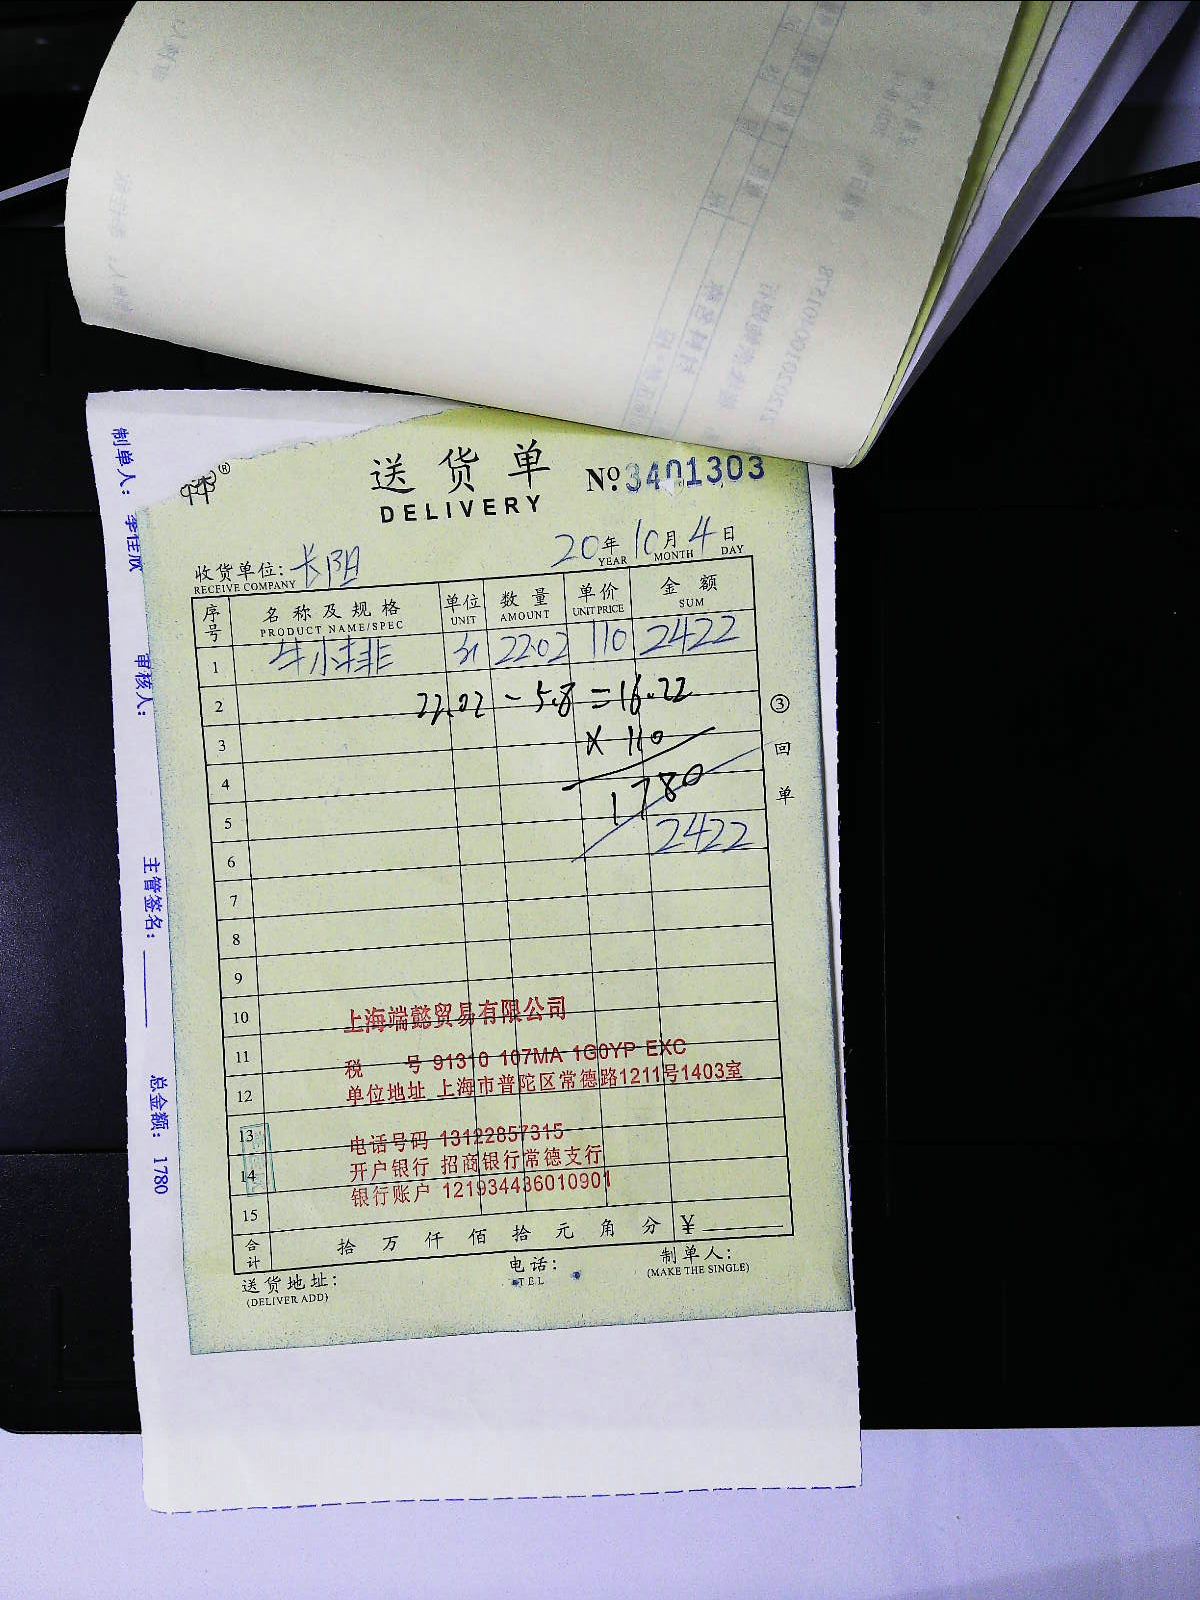 送货单
DELIVERY
№: 3401303
收货单位: 长阳
RECEIVE COMPANY
20年10月4日
YEAR MONTH DAY
序号 名称及规格 单位 数量 单价 金额
PRODUCT NAME/SPEC UNIT AMOUNT UNIT PRICE SUM
1 牛小排 斤 22.02 110 2422
2 22.02 - 5.8 = 16.22
3 × 110
4 1780
5 2422
6
7
8
9
10
11
12
13
14
15
③回单
上海端懿贸易有限公司
税 号 91310 107MA 1G0YP EXC
单位地址 上海市普陀区常德路1211号1403室
电话号码 13122857315
开户银行 招商银行常德支行
银行账户 121934436010901
合计 拾 万 仟 佰 拾 元 角 分 ¥
送货地址:
(DELIVER ADD)
电话:
TEL
制单人:
(MAKE THE SINGLE)
制单人: 李佳欣
审核人:
主管签名:
总金额: 1780